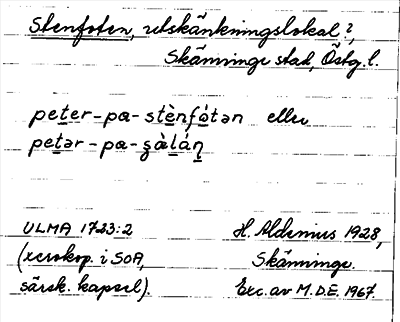 Stenfoten, utskänkningslokal i
Skänninge stad, Östg. l.
peter-pa-stènfó̀tən eller
petər-pa-s̨àlán̥
ULMA 1723:2
H. Aldenius 1928,
(xerokop. i SOA,
Skänninge.
särsk. kapsel).
Exc. av M.D.E. 1967.